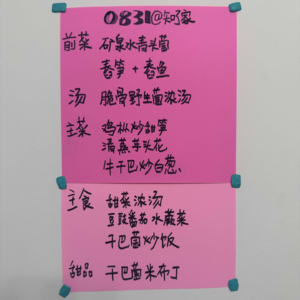 0831@知了家
前菜 矿泉水青头菌
舂笋+舂鱼
汤 脆骨野生菌浓汤
主菜 鸡枞炒甜笋
清蒸芋头花
牛干巴炒白葱、
主食 甜菜浓汤
豆豉番茄水蕨菜
干巴菌炒饭
甜品 干巴菌米布丁